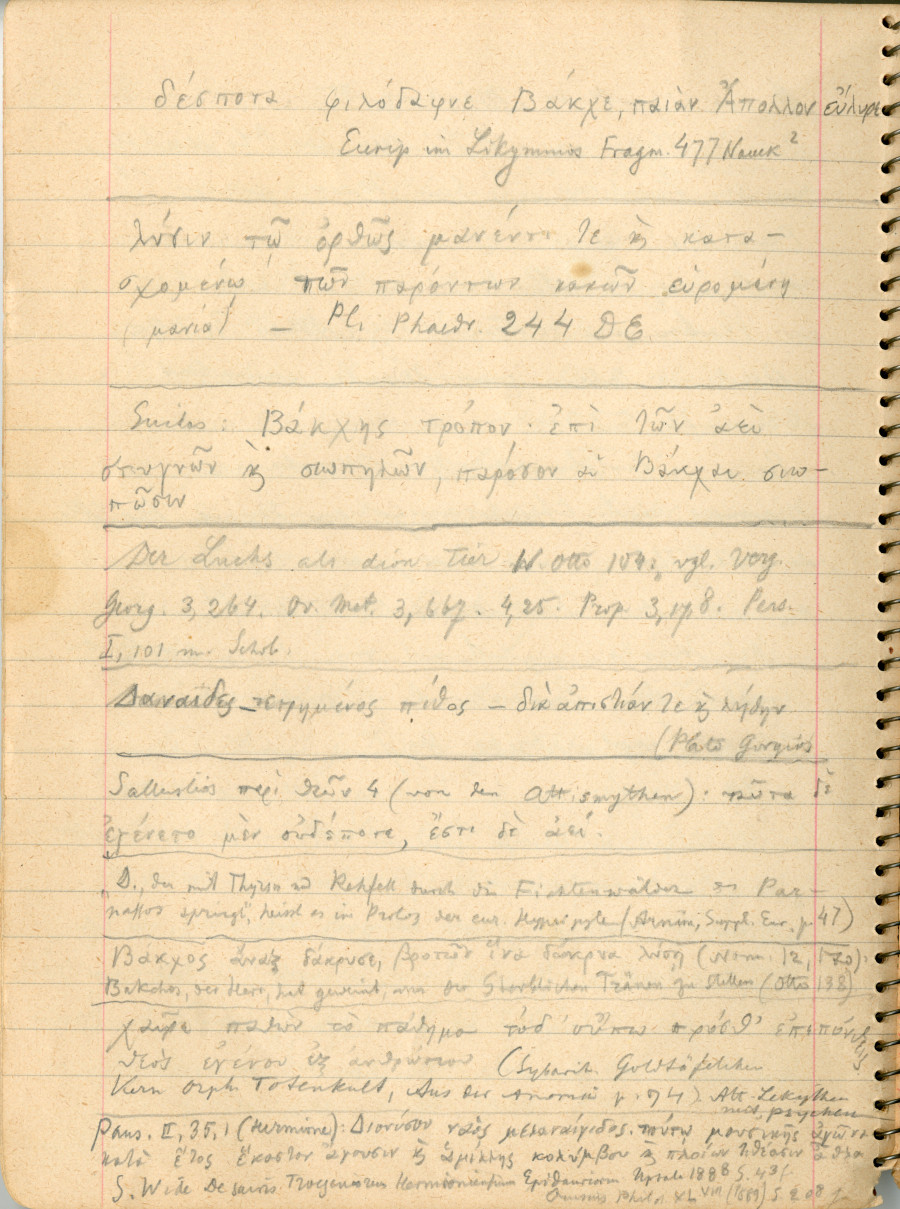 δέσποτα φιλόδαφνε Βάκχε, παιὰν Ἄπολλον εὔλυρε
Eurip im Likymnios Fragm. 477 Nauck²
λύσιν τῷ ὀρθῶς μανέντι τε κ κατα-
σχομένῳ τῶν παρόντων κακῶν εὑρομένη
(μανία) – Pl. Phaedr. 244 DE
Suidas: Βάκχης τρόπον· ἐπὶ τῶν ἀεὶ
στυγνῶν κ σιωπηλῶν, παρόσον αἱ Βάκχαι σιω-
πῶσιν
Der Luchs als dion Tier W. Otto 104. vgl. Verg.
Georg. 3,264. Ov. Met. 3,667. 4,25. Prop. 3,17,8. Pers.
I, 101 m. Schol.
Δαναΐδες – τετρημένος πίθος – δι' ἀπιστίαν τε κ λήθην
(Plato Gorgias
Sallustios περὶ θεῶν 4 (von den Attismythen): ταῦτα δὲ
ἐγένετο μὲν οὐδέποτε, ἔστι δὲ ἀεί.
„D., der mit Thyrsos und Rehfell durch die Fichtenwälder des Par-
nassos springt", heisst es im Prolog der eur. Hypsipyle (Arnim, Suppl. Eur. p. 47)
Βάκχος ἄναξ δάκρυσε, βροτῶν ἵνα δάκρυα λύσῃ (Nonn. 12, 170):
Bakchos, der Herr, hat geweint, um der Sterblichen Tränen zu stillen (Otto 138)
χαῖρε παθὼν τὸ πάθημα τόδ' οὔπω πρόσθ' ἐπεπόνθεις
θεὸς ἐγένου ἐξ ἀνθρώπου (Sybarit. Goldtäfelchen
Kern Orph. Totenkult, Aus der Anomia p. 94) Att. Lekythen
mit psychen
Paus. II, 35, 1 (Hermione): Διονύσου ναὸς μελαναίγιδος. τούτῳ μουσικῆς ἀγῶνα
κατὰ ἔτος ἕκαστον ἄγουσιν κ ἁμίλλης κολύμβου κ πλοίων τιθέασιν ἆθλα
S. Wide De sacris Troezeniorum Hermionensium Epidauriorum Upsala 1888 S. 43f.
XLVIII (1889)